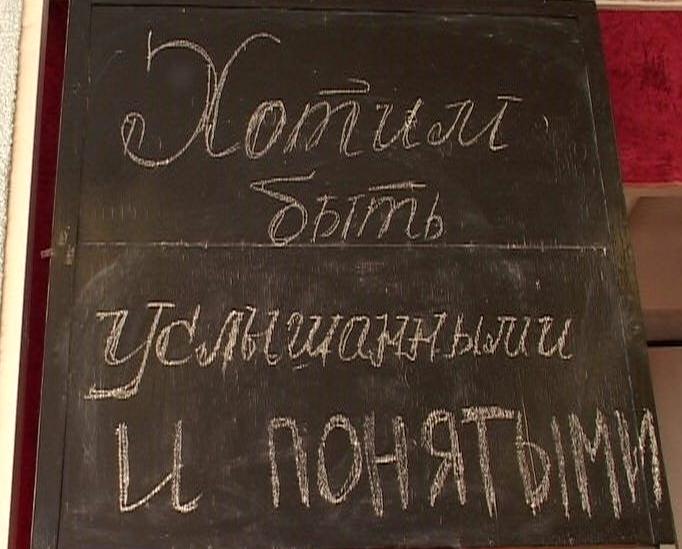 Хотим
быть
услышанными
и ПОНЯТЫМИ